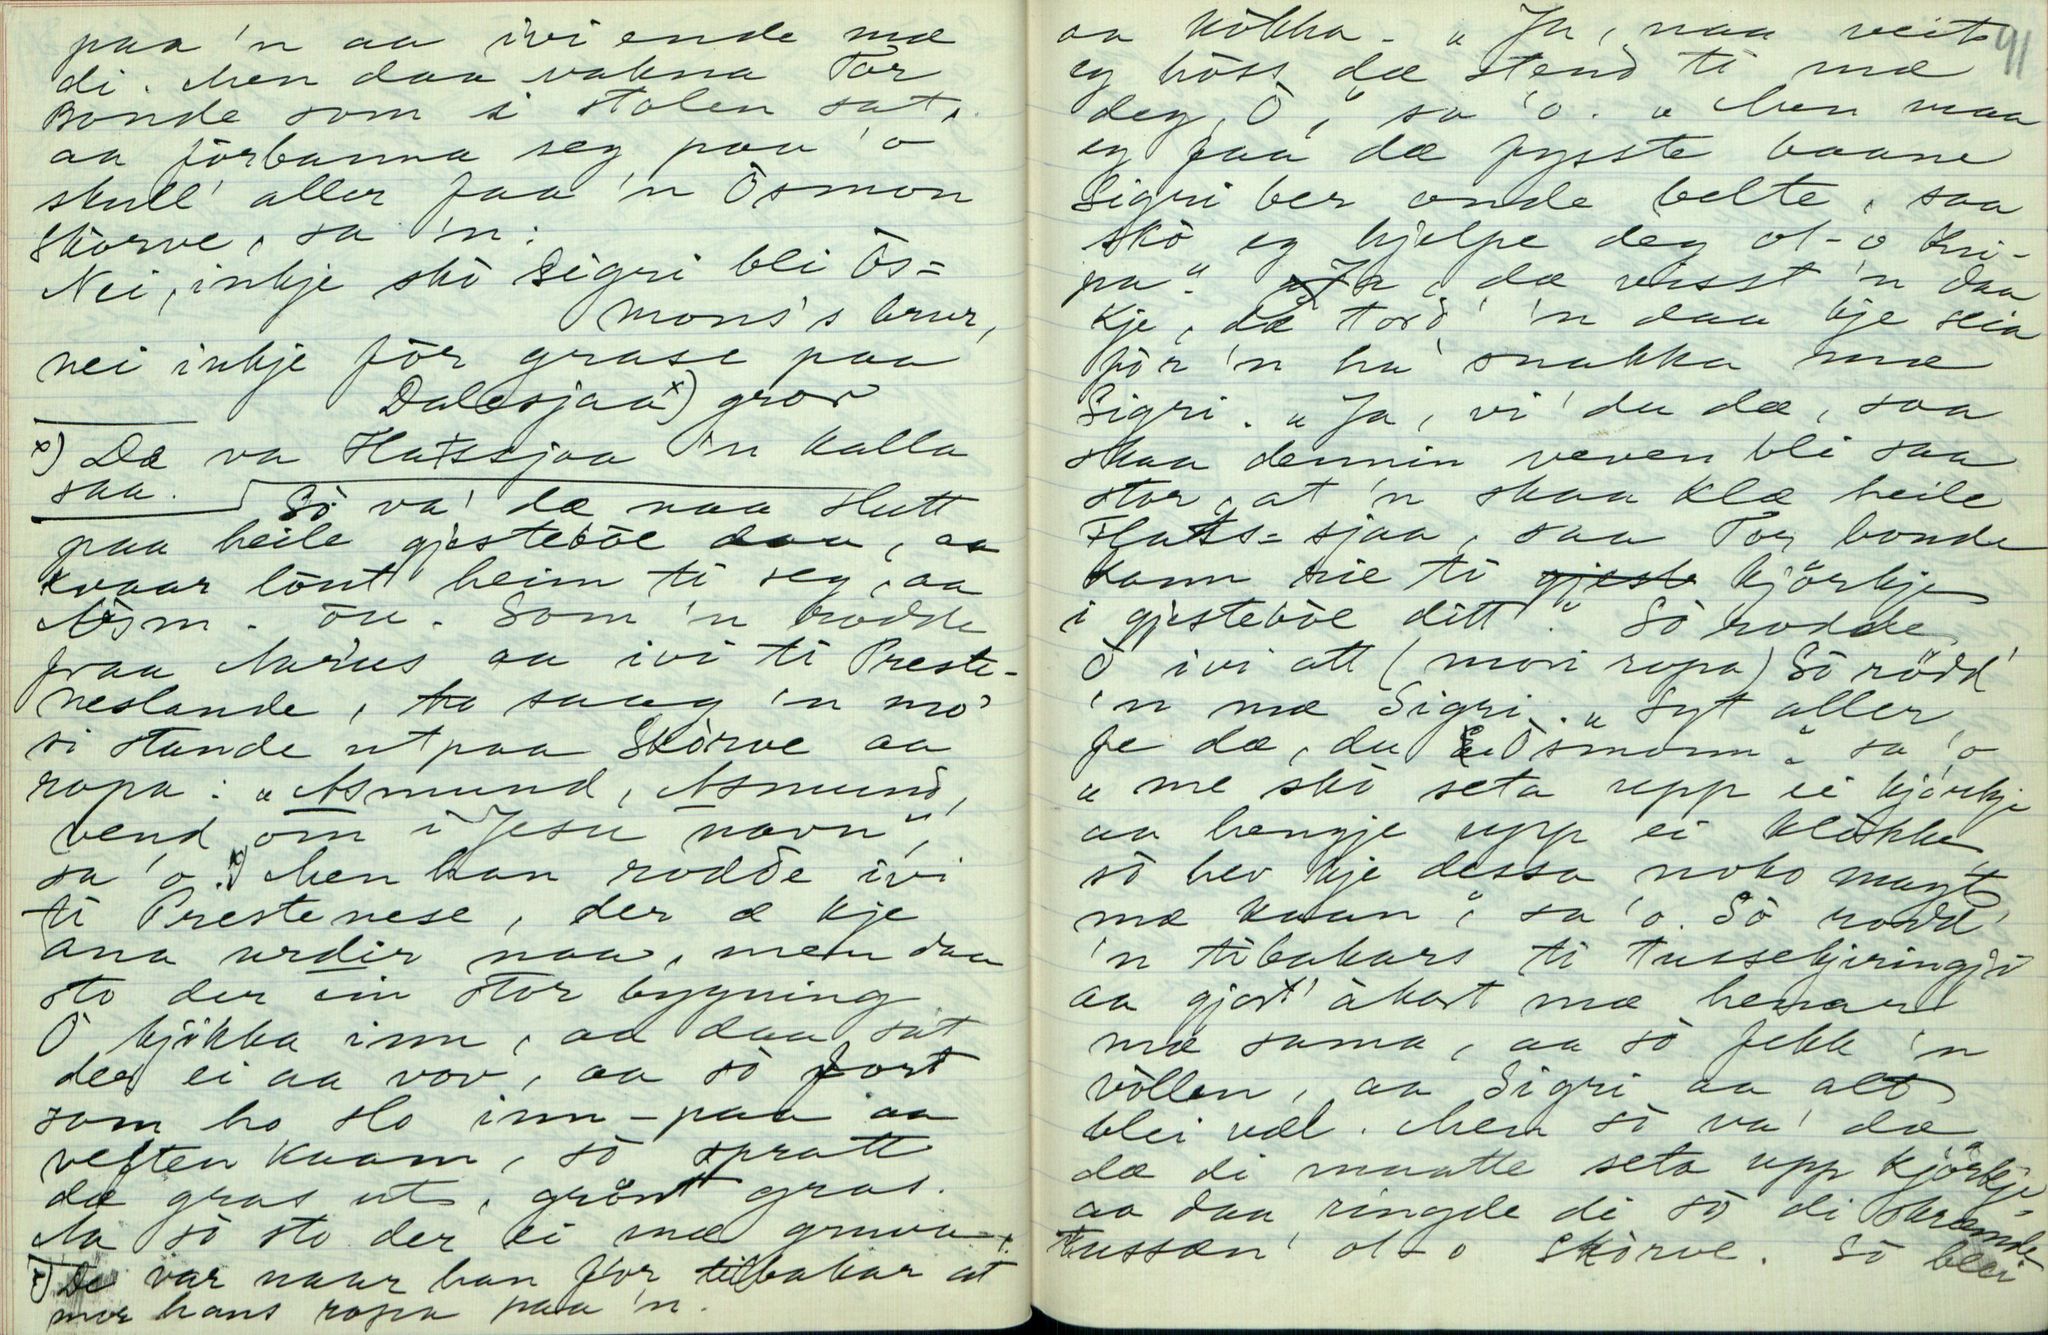 paa 'n aa ivi ende mæ
di. Men daa vakna Tor
Bonde som i stolen sat,
aa förbanna seg paa 'o
skull' aller faa 'n Òsmon
Skorve, sa 'n:
Nei, inkje skò Sigri bli Òs=
mons's brur,
nei inkje för grase paa
Dalesjaa x) gror
x) Dæ va Hatssjaa 'n kalla
saa.
Sò va' dæ naa slutt
paa heile gjesteböe daa, aa
kvaar lönt heim ti seg, aa
Asm. òu. Som 'n rodde
fraa Marius aa ivi ti Preste-
neslande, saag 'n mo'
si stande utpaa Skorve aa
ropa: "Asmund, Asmund,
vend om i Jesu navn",
sa 'o. x) Men han rodde ivi
ti Prestenese, der æ kje
ana urdir naa, men daa
sto der ein stor bygning
Ò kjikka inn, aa daa sat
der ei aa vov, aa sò fort
som ho slo inn-paa aa
veften kaam, sò spratt
dæ gras ut, grönt gras.
Aa sò sto der ei mæ gruva
x) De var naar han för tilbakar at
mor hans ropa paa 'n.
91
aa kokka. "Ja, naa veit
eg hòss dæ stend ti mæ
deg, Ò," sa 'o. "Men maa
eg faa dæ fysste baane
Sigri ber onde belte, saa
skò eg hjelpe deg ot-o kni-
pa." Ja, dæ visst 'n daa
kje, dæ tord' 'n daa kje seia
för 'n ha' snakka mæ
Sigri. "Ja, vi' du dæ, saa
skaa dennin veven bli saa
stor, at 'n skaa klæ heile
Hats=sjaa, saa Tor bonde
kann rie ti gjeste kjörkje
i gjesteböe ditt." Sò rodde
Ò ivi att (mori ropa) Sò rödd'
'n mæ Sigri. "Syt aller
fe dæ, du Òsmonn" sa 'o
"me skò seta upp ei kjörkje
aa hengje upp ei klòkke
sò hev kje dessa noko magt
mæ kaan", sa 'o. Sò rodd'
'n tibakars ti tussekjeringji
aa gjord' àkort mæ henar
mæ sama, aa sò fekk 'n
vòllen, aa Sigri aa alt
blei vel. Men sò va' dæ
dæ di maatte seta upp kjörkje=
aa daa ringde di sò di skræmde
tussæn' ot-o Skorve. Sò blei